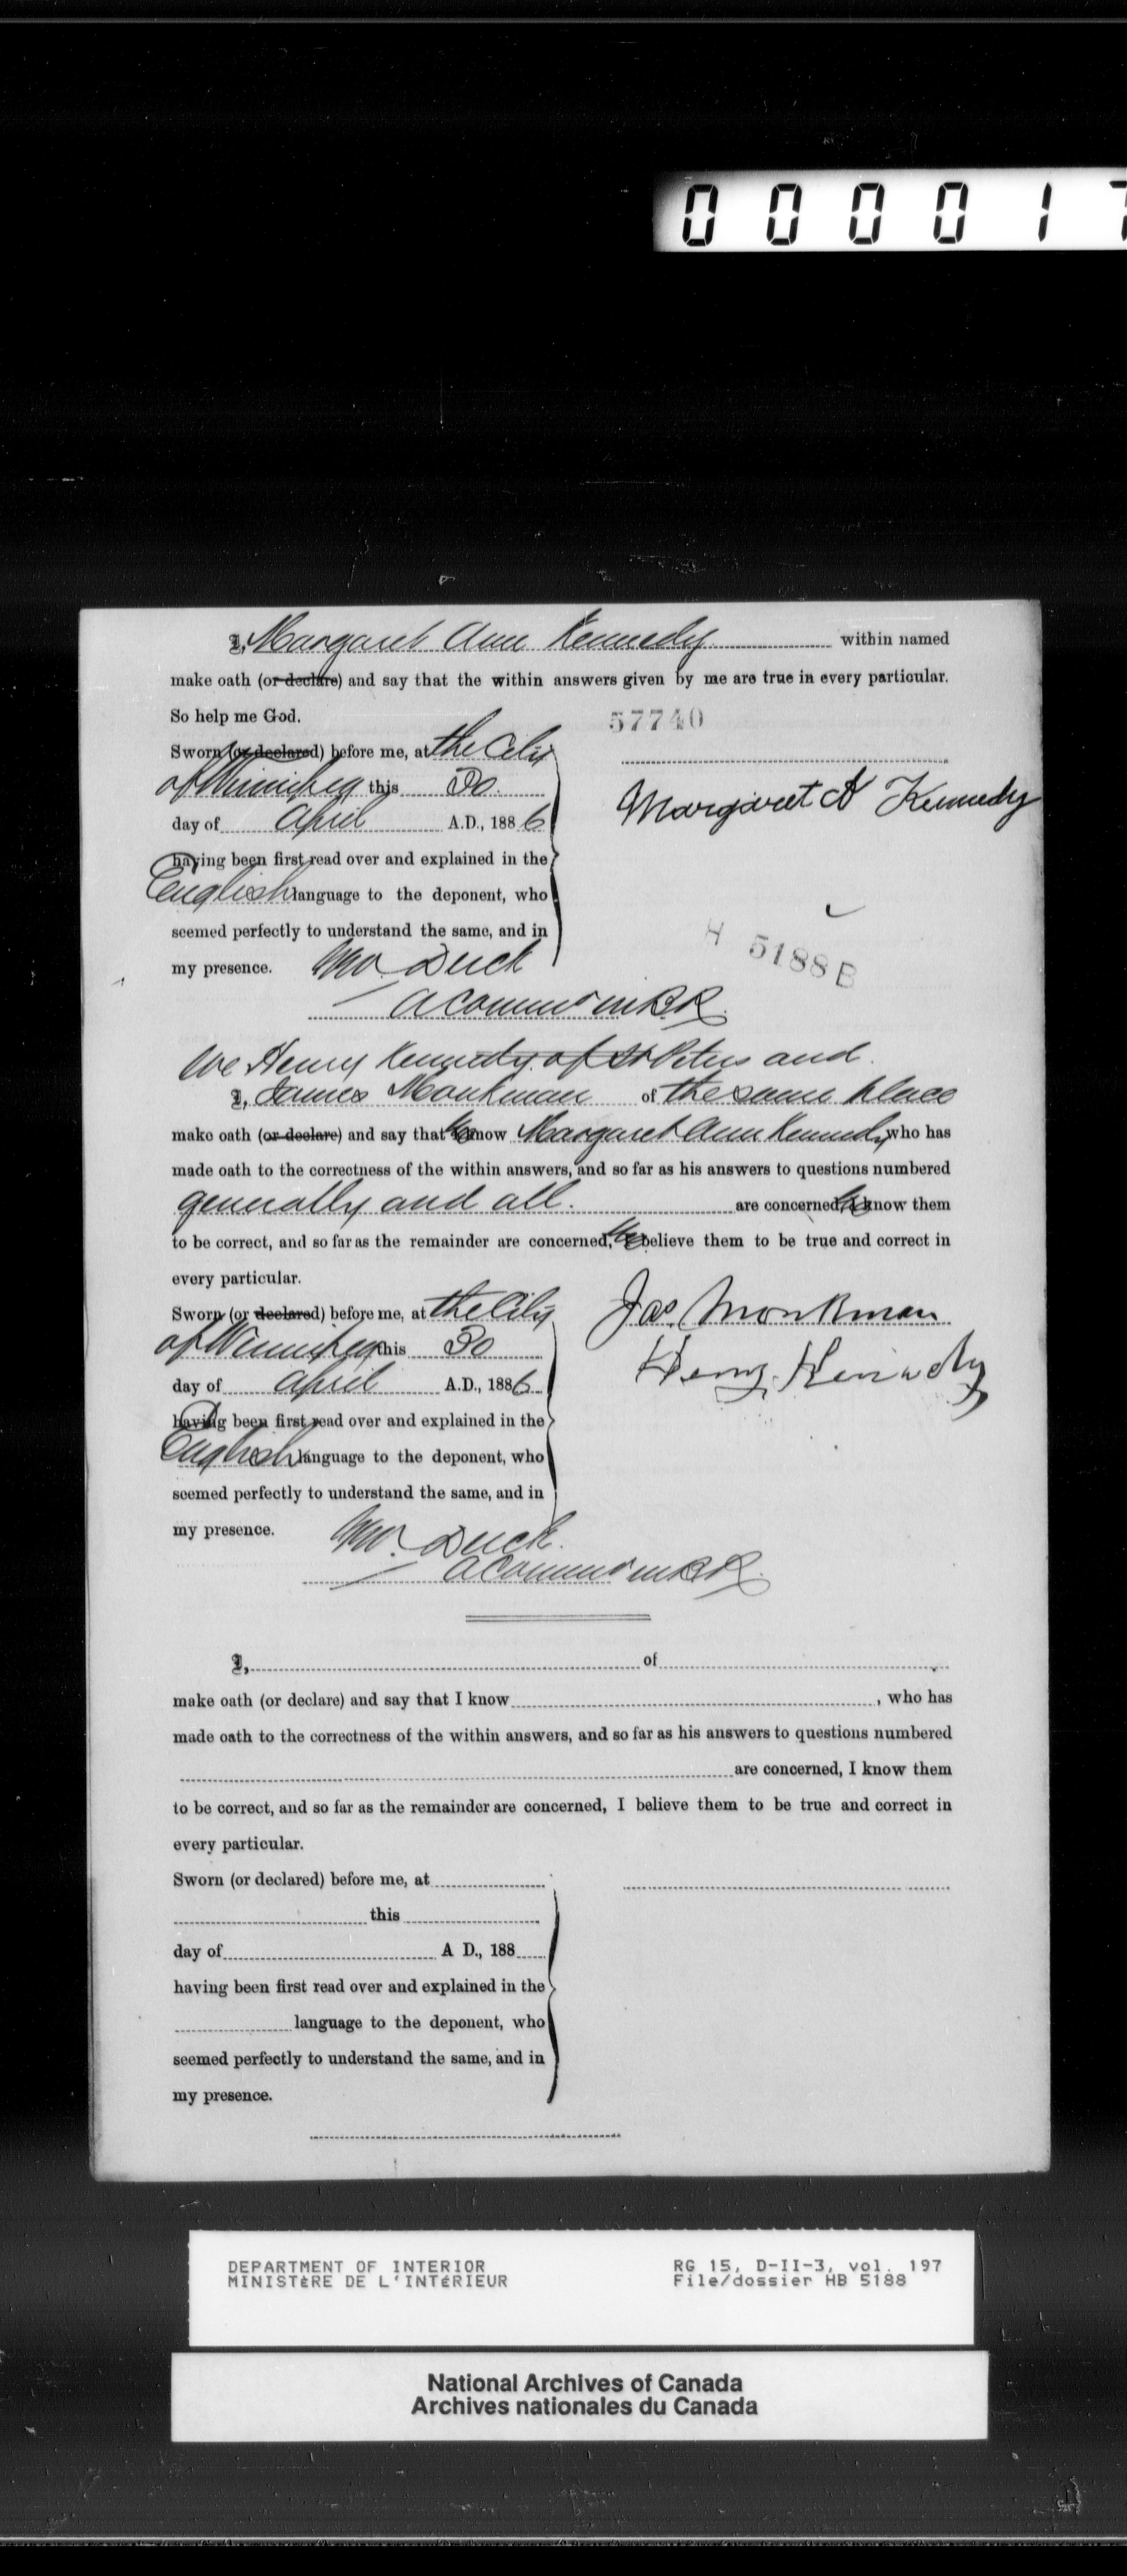 0 0 0 0 1 7
I, Margaret Ann Kennedy within named
make oath (or declare) and say that the within answers given by me are true in every particular.
So help me God.
57740
Sworn (or declared) before me, at the City
of Winnipeg this 30
Margaret A Kennedy
day of April A.D., 1886
having been first read over and explained in the
English language to the deponent, who
seemed perfectly to understand the same, and in
H 5188 B
my presence. Wm. Duck
A Commr in B.R.
We Henry Kennedy of St Peters and
I, James Monkman of the same place
make oath (or declare) and say that We know Margaret Ann Kennedy who has
made oath to the correctness of the within answers, and so far as his answers to questions numbered
generally and all. are concerned, We know them
to be correct, and so far as the remainder are concerned, We believe them to be true and correct in
every particular.
Sworn (or declared) before me, at the City
Jas. Monkman
of Winnipeg this 30
Henry Kennedy
day of April A.D., 1886
having been first read over and explained in the
English language to the deponent, who
seemed perfectly to understand the same, and in
my presence. Wm. Duck.
A Commr in B.R.
I, of
make oath (or declare) and say that I know , who has
made oath to the correctness of the within answers, and so far as his answers to questions numbered
are concerned, I know them
to be correct, and so far as the remainder are concerned, I believe them to be true and correct in
every particular.
Sworn (or declared) before me, at
this
day of A D., 188
having been first read over and explained in the
language to the deponent, who
seemed perfectly to understand the same, and in
my presence.
DEPARTMENT OF INTERIOR
MINISTÈRE DE L'INTÉRIEUR
RG 15, D-II-3, vol. 197
File/dossier HB 5188
National Archives of Canada
Archives nationales du Canada